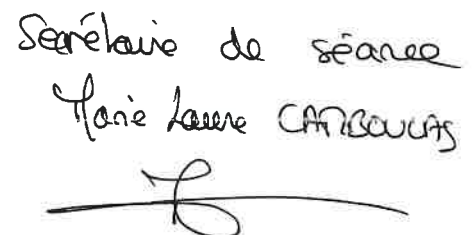 Secrétaire de séance
Marie Laure CAMBOULAS